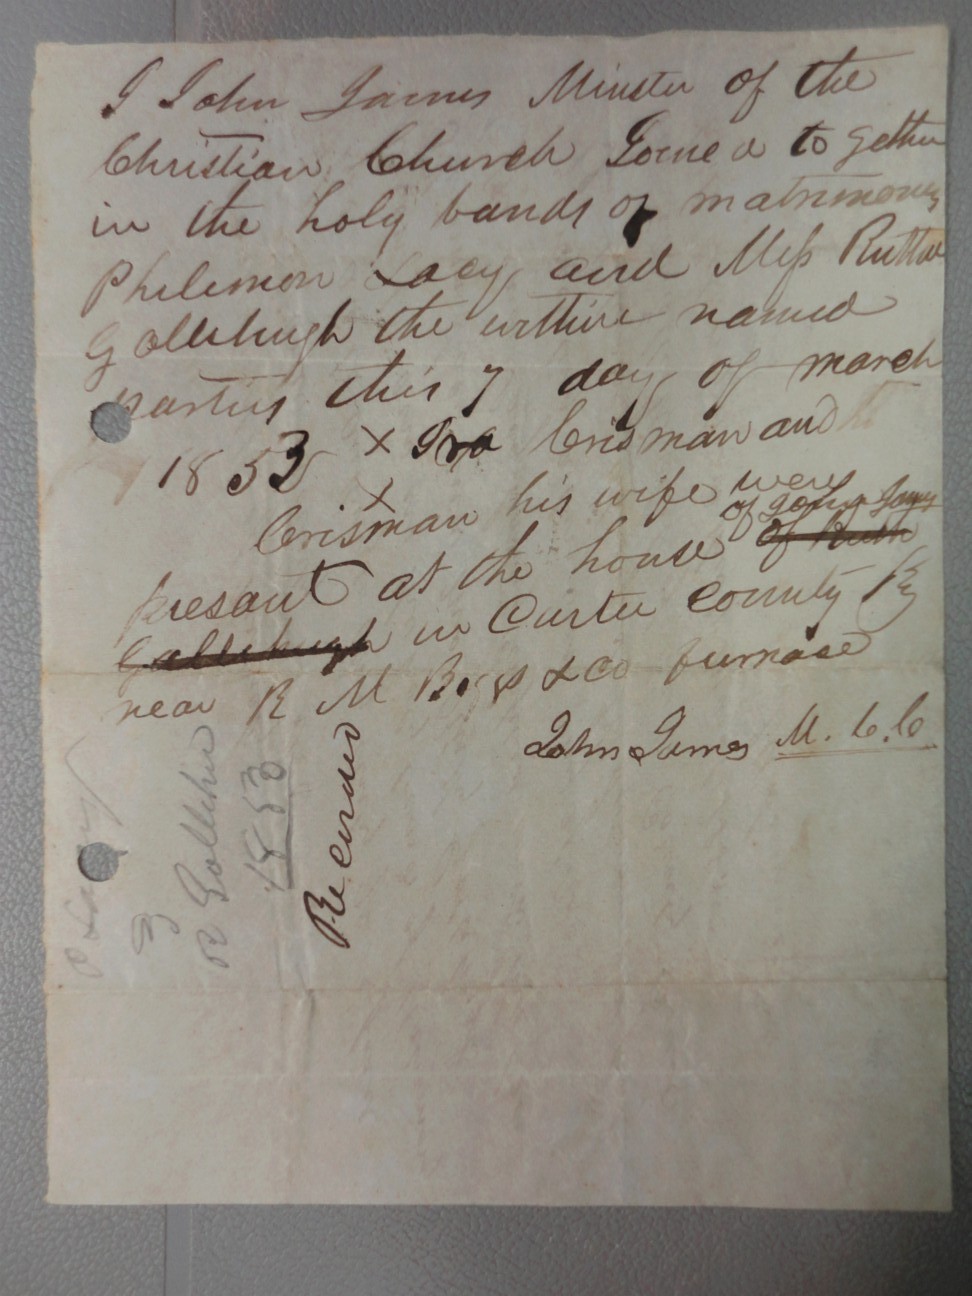 I John James Minister of the
Christian Church Joined to gether
in the holy bands of matrimony
Philemon Lacy and Miss Ruth
Gallehugh the within named
parties this 7 day of march
1853 X Ira Crisman and
X
Crisman his wife were
of John James
present at the house of Ruth
Gallehugh in Carter County Ky
near R M Bigs & Co furnace
John James M. C. C.
P Lacy
3
R Gollihu
1853
Recorded